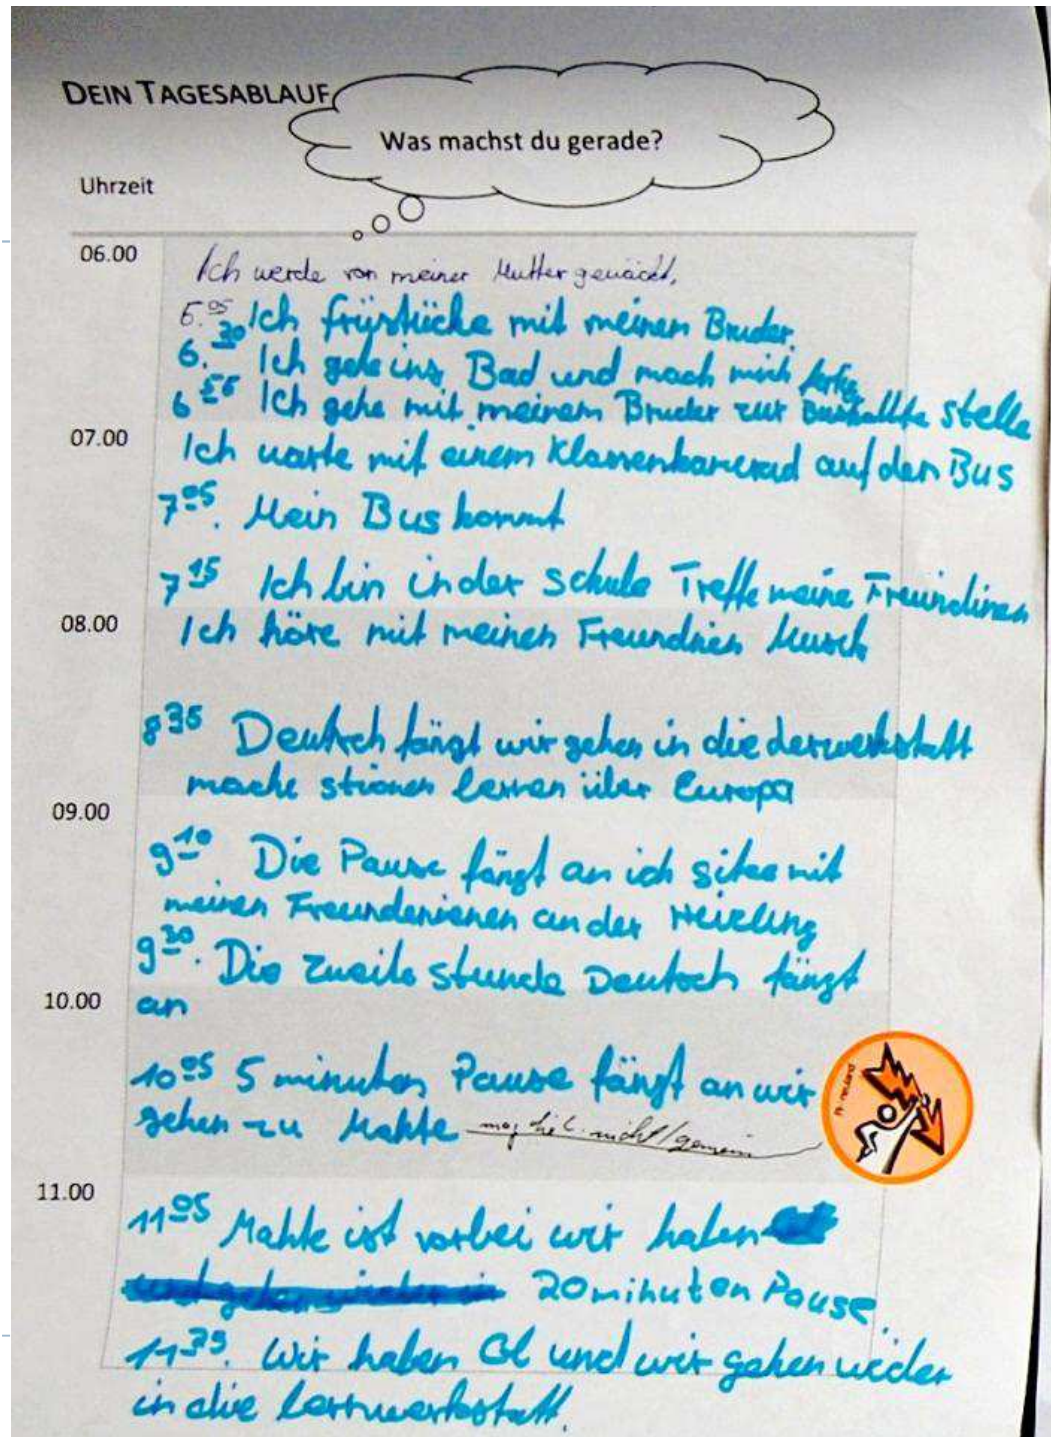 DEIN TAGESABLAUF
Was machst du gerade?
Uhrzeit
06.00
Ich werde von meiner Mutter gewäckt,
6.05 Ich früstücke mit meinem Bruder.
6.30 Ich gehe ins Bad und mach mich fertig
6 55 Ich gehe mit meinem Bruder zur Bushallte stelle
07.00
Ich warte mit einem Klassenkamerad auf den Bus
7 05. Mein Bus kommt
7 15 Ich bin in der schule Treffe meine Freundinen
08.00
Ich höre mit meinen Freundnien Musik
8 35 Deutsch fängt wir gehen in die
mache lernen über Europa
09.00
9 10 Die Pause fängt an ich sitze mit
meinen an der Heizung
9 30. Die zweite stunde Deutsch fängt
10.00
an
10 05 5 minuten Pause fängt an wir
gehen zu Mahte mag nicht/gemein
11.00
11 05 Mahte ist vorbei wir haben
20 minuten Pause.
Wir haben Gl und wir gehen wider
in die lernwerkstatt.